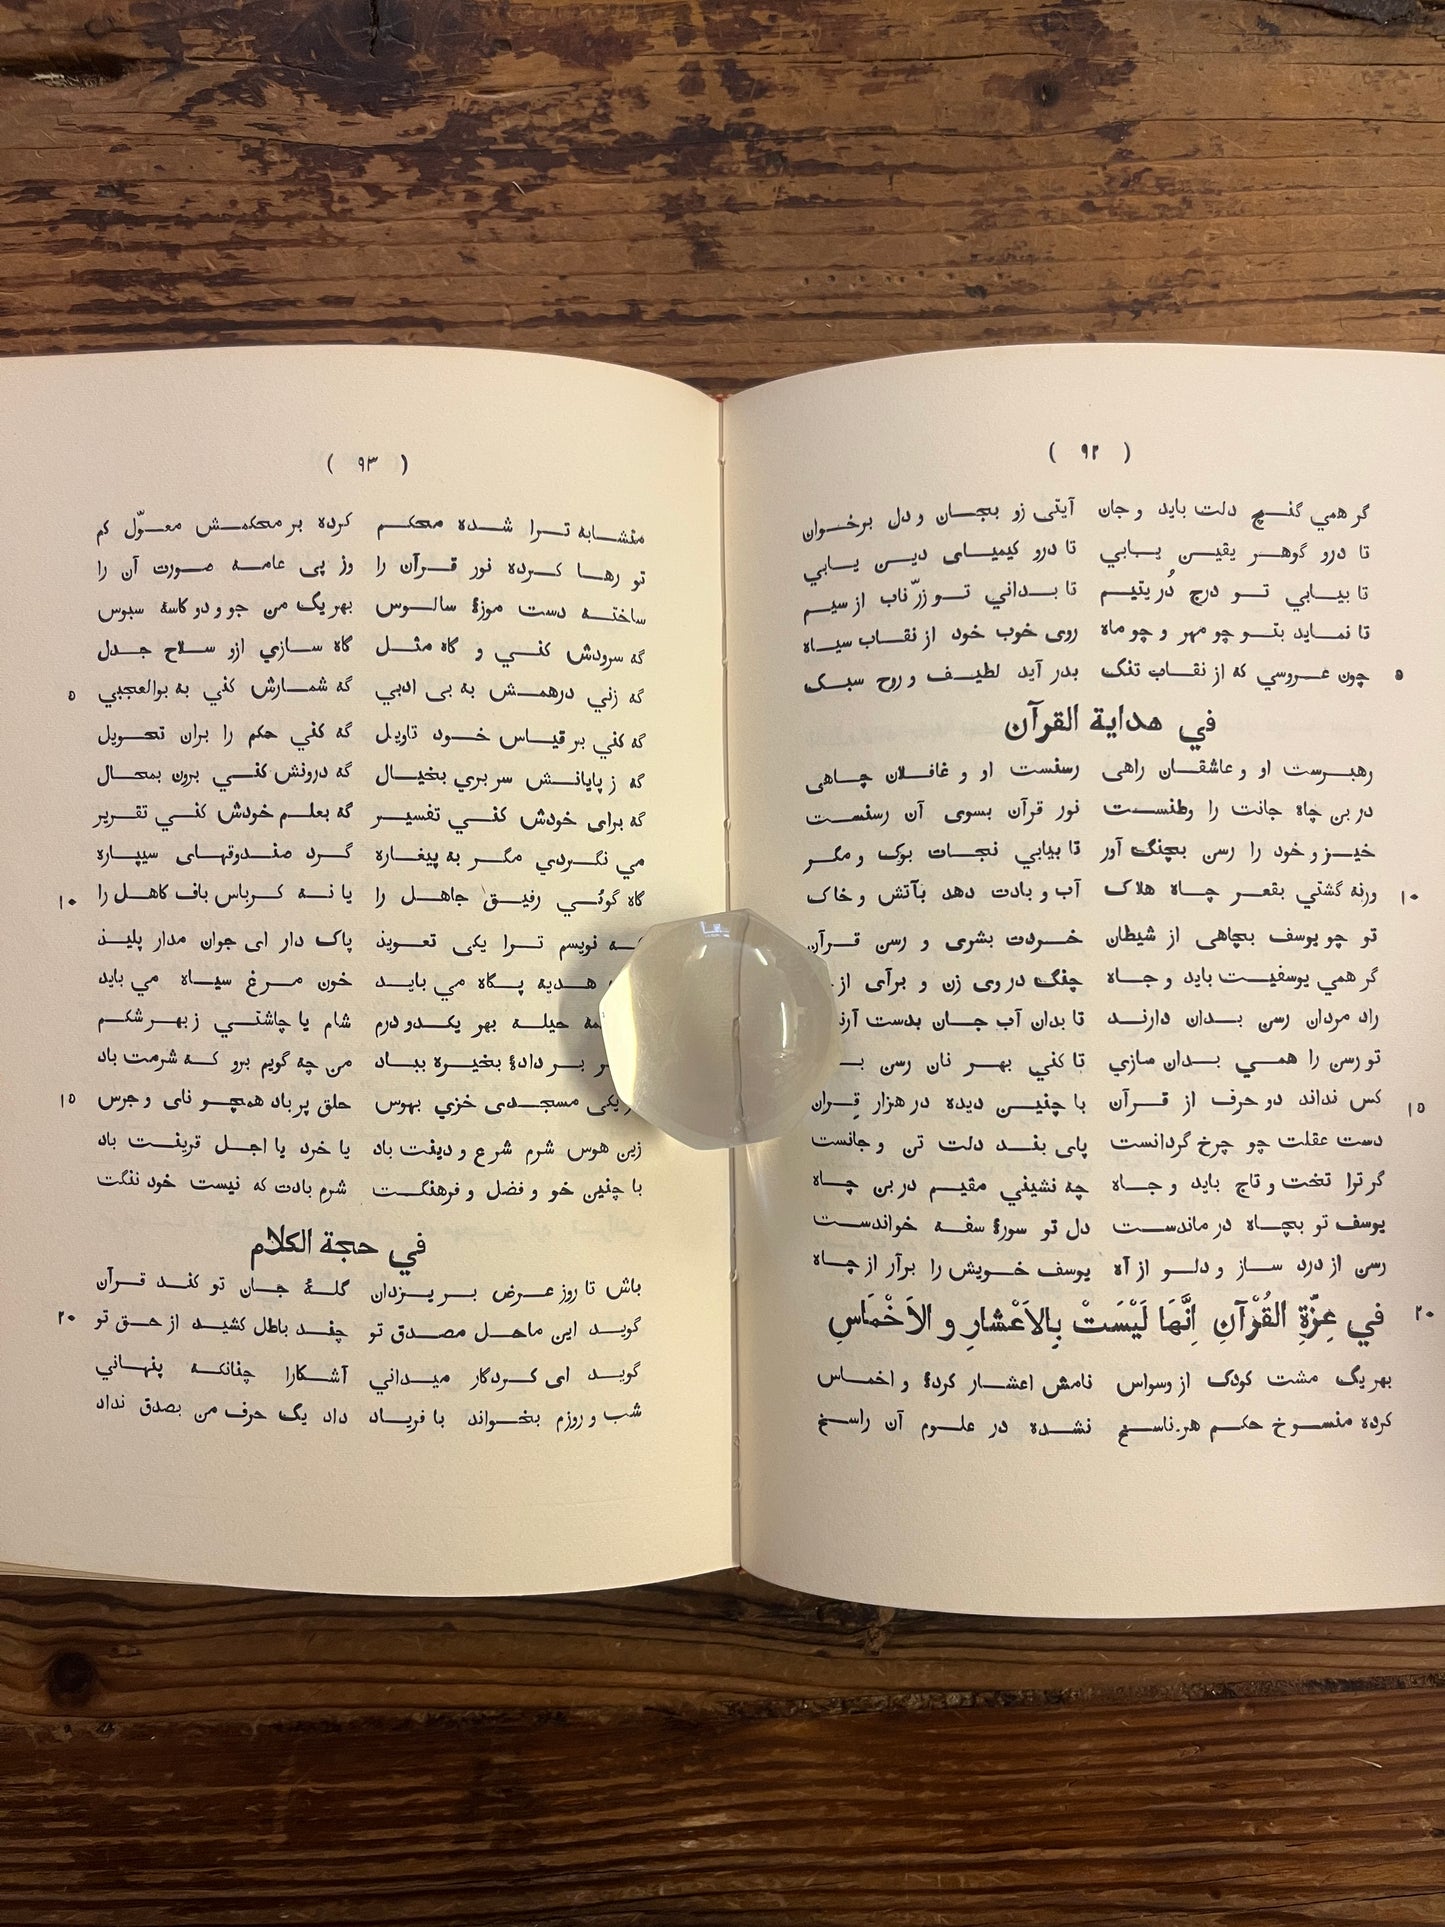 ( ۹۲ )
گر همي گنج دلت بايد و جان آيتى زو بجان و دل برخوان
تا درو گوهر يقين يابي تا درو كيمياى دين يابي
تا بيابي تو درج دُر يتيم تا بداني تو زرّ ناب از سيم
تا نمايد بتو چو مهر و چو ماه روى خوب خود از نقاب سياه
چون عروسي كه از نقاب تنگ بدر آيد لطيف و روح سبک ۵
في هداية القرآن
رهبرست او و عاشقان راهى رسنست او و غافلان چاهى
در بن چاه جانت را وطنست نور قرآن بسوى آن رسنست
خيز و خود را رسن بچنگ آور تا بيابي نجات بوک و مگر
ورنه گشتي بقعر چاه هلاک آب و بادت دهد بآتش و خاک ۱۰
تو چو يوسف بچاهى از شيطان خردت بشرى و رسن قرآن
گر همي يوسفيت بايد و جاه چنگ در وى زن و برآى از
راد مردان رسن بدان دارند تا بدان آب جان بدست
تو رسن را همي بدان سازي تا كني بهر نان رسن
كس نداند دو حرف از قرآن با چنين ديده در هزار قران ۱۵
دست عقلت چو چرخ گردانست پاى بند دلت تن و جانست
گر ترا تخت و تاج بايد و جاه چه نشيني مقيم در بن چاه
يوسف تو بچاه در ماندست دل تو سورۀ سفه خواندست
رسن از درد ساز و دلو از آه يوسف خويش را برآر از چاه
في عِزّةِ القُرْآنِ اِنَّهَا لَيْسَتْ بِالاَعْشارِ و الاَخْمَاسِ ۲۰
بهر يگ مشت كودک از وسواس نامش اعشار كردۀ و اخماس
كرده منسوخ حكم هر ناسخ نشده در علوم آن راسخ
( ۹۳ )
متشابه ترا شده محكم كرده بر محكمش معوّل كم
تو رها كرده نور قرآن را وز پى عامه صورت آن را
ساخته دست موزۀ سالوس بهر يگ من جو و دو كاسۀ سبوس
گه سرودش كني و گاه مثل گاه سازي ازو سلاح جدل
گه زني درهمش به بى ادبي گه شمارش كني به بوالعجبي ۵
گه كني بر قياس خود تاويل گه كني حكم را بران تحويل
گه ز پايانش سر بري بخيال گه درونش كني برون بمحال
گه براى خودش كني تفسير گه بعلم خودش كني تقرير
مي نگردي مگر به پيغاره گرد صندوقهاى سيپاره
گاه گوئي رفيق جاهل را يا نه كرباس باف كاهل را ۱۰
نويسم ترا يكى تعويذ پاک دار اى جوان مدار پليذ
هديه پگاه مي بايد خون مرغ سياه مي بايد
حيله بهر يكدو درم شام يا چاشتي ز بهر شكم
بر دادۀ بخيره بباد من چه گويم برو كه شرمت باد
يكى مسجدى خزي بهوس حلق پر باد همچو ناى و جرس ۱۵
زين هوس شرم شرع و دينت باد يا خرد يا اجل قرينت باد
با چنين خو و فضل و فرهنگت شرم بادت كه نيست خود ننگت
في حجة الكلام
باش تا روز عرض بر يزدان گلۀ جان تو كند قرآن
گويد اين ماحل مصدق تو چند باطل كشيد از حق تو ۲۰
گويد اى كردگار ميداني آشكارا چنانكه پنهاني
شب و روزم بخواند با فرياد داد يگ حرف من بصدق نداد